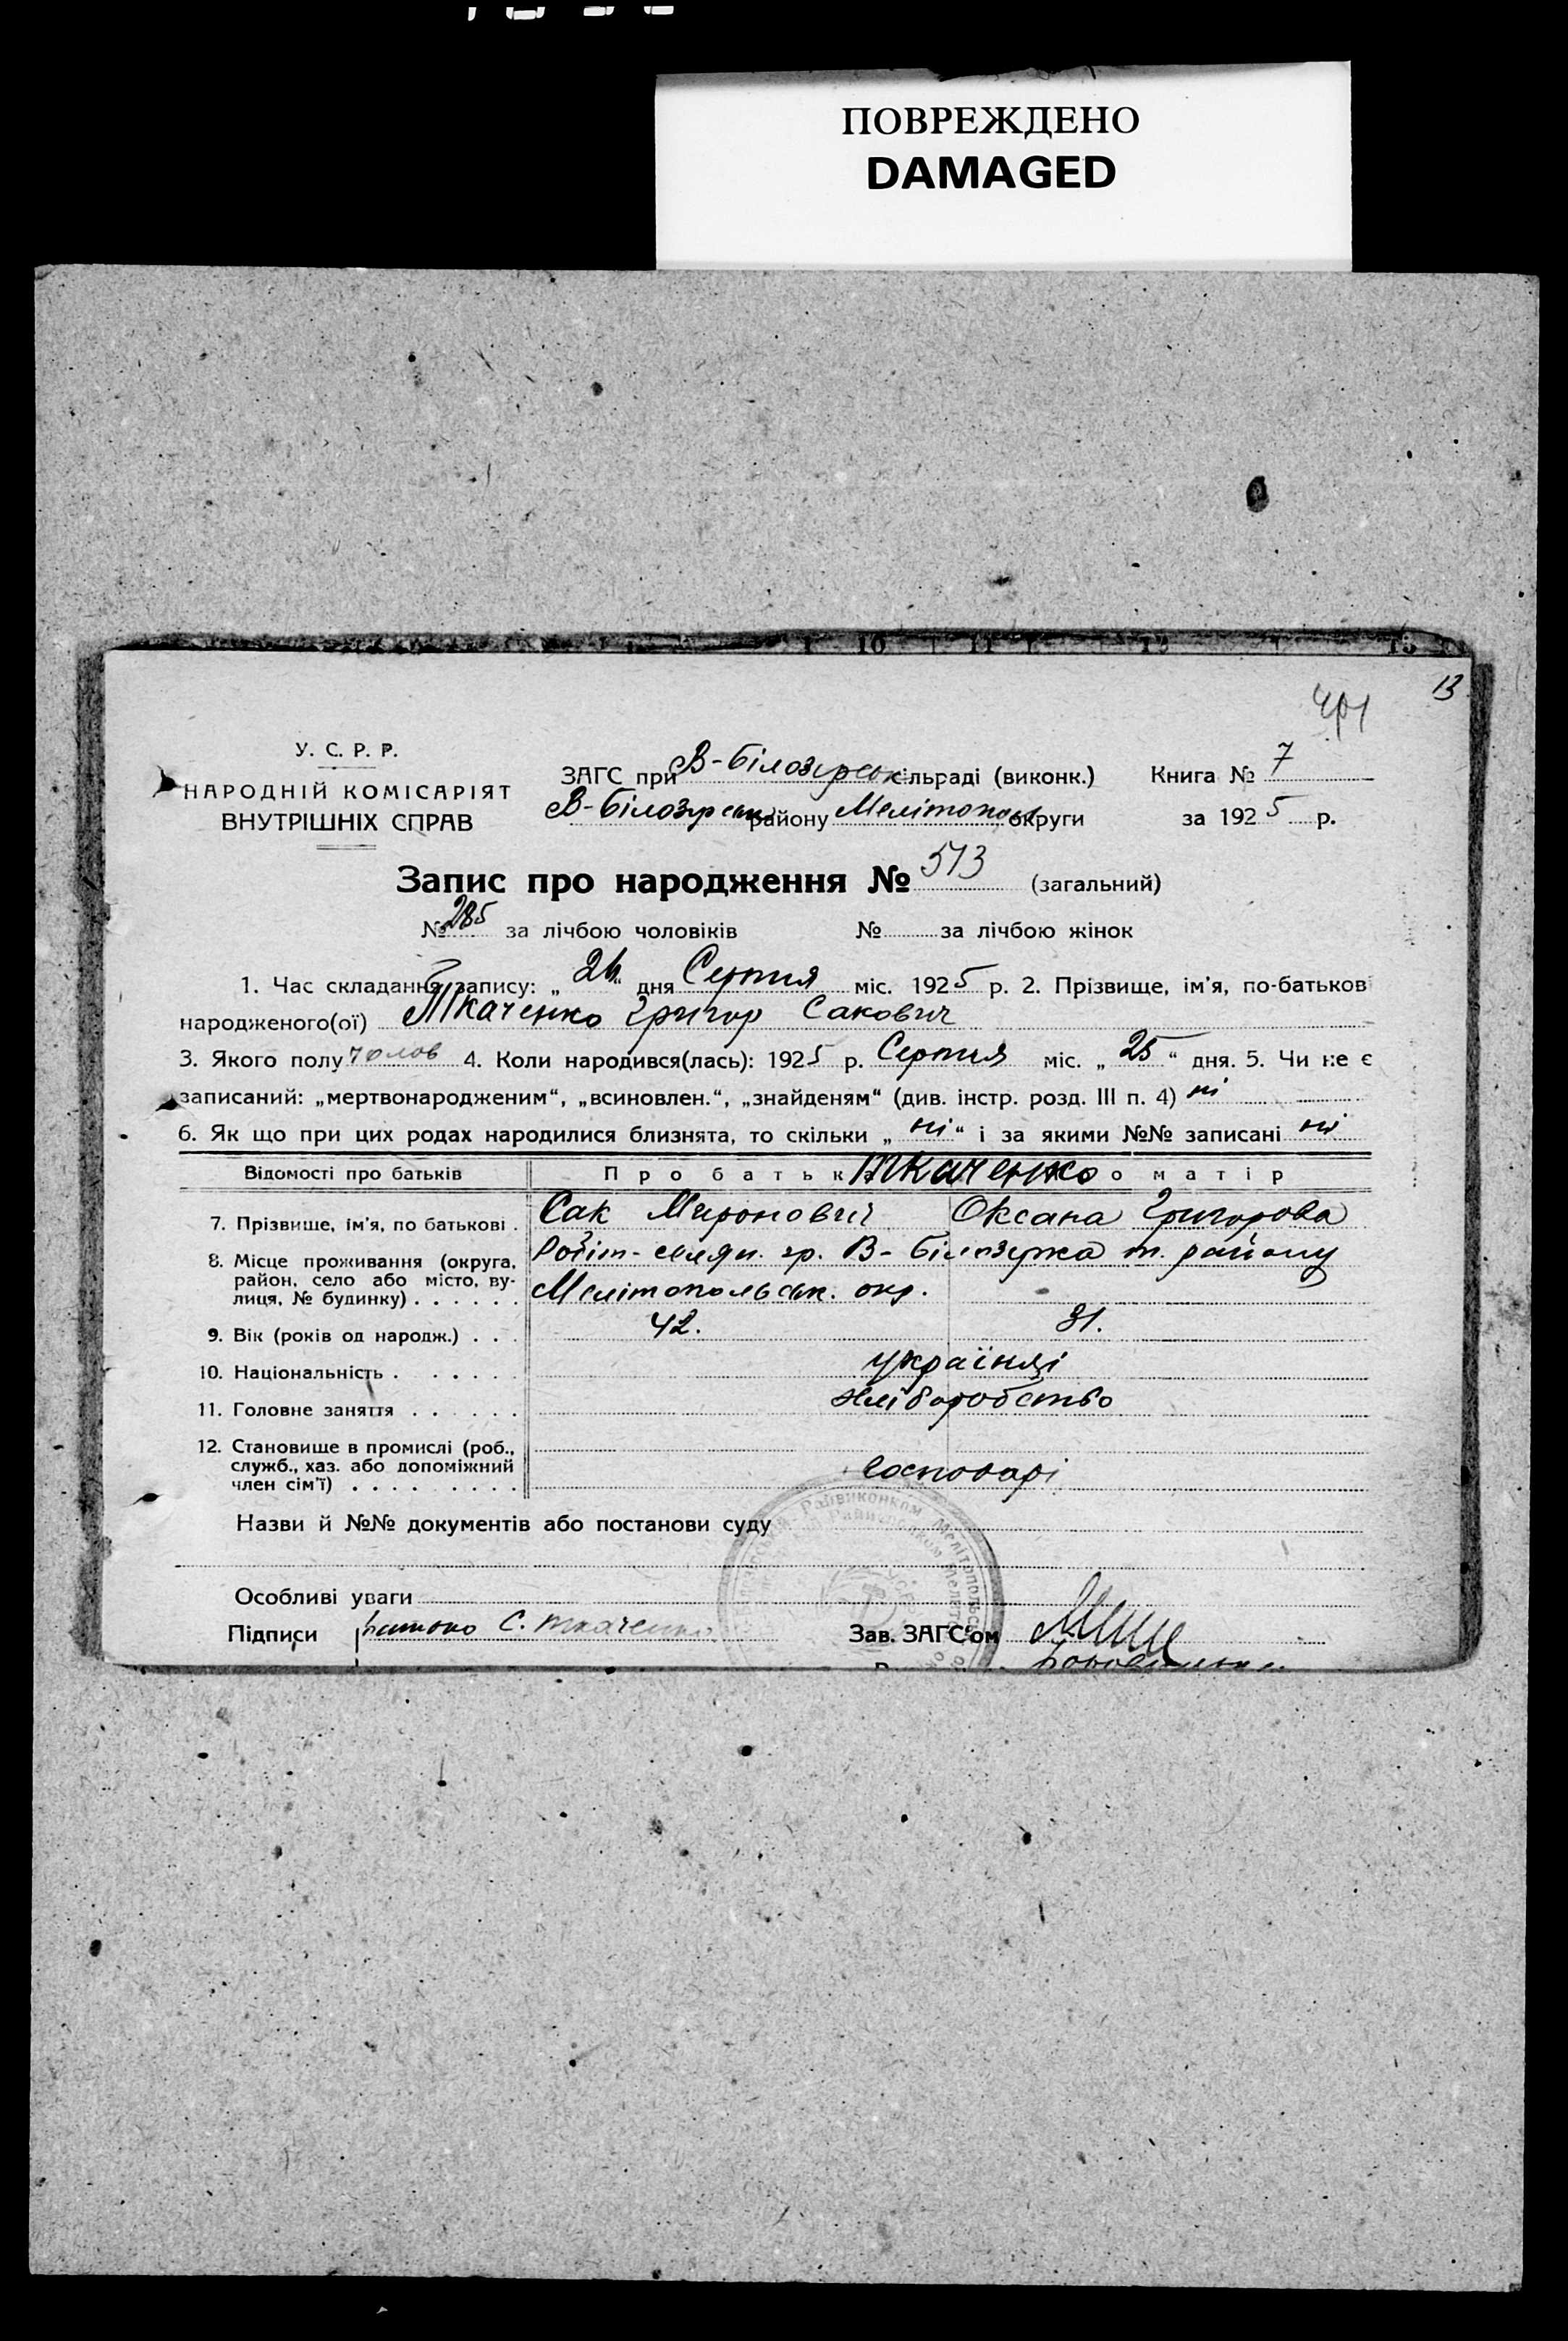 ПОВРЕЖДЕНО
DAMAGED
13
У. С. Р. Р.
НАРОДНІЙ КОМІСАРІЯТ
ВНУТРІШНІХ СПРАВ
ЗАГС при В-Білозирськ сільраді (виконк.) Книга № 7
В-Білозирськ району Мелітопол округи за 1925 р.
Запис про народження № 513 (загальний)
№ 285 за лічбою чоловіків № за лічбою жінок
1. Час складання запису: „26“ дня Серпня міс. 1925 р. 2. Прізвище, ім'я, по-батьков
народженого(ої) Ткаченко Григор Сакович
3. Якого полу чолов 4. Коли народився(лась): 1925 р. Серпня міс. „25“ дня. 5. Чи не є
записаний: „мертвонародженим“, „всиновлен.“, „знайденям“ (див. інстр. розд. III п. 4) ні
6. Як що при цих родах народилися близнята, то скільки „ні“ і за якими №№ записані ні
Відомості про батьків Про батьк Ткаченко о матір
7. Прізвище, ім'я, по батькові . Сак Миронович Оксана Григорова
8. Місце проживання (округа, район, село або місто, вулиця, № будинку) . . . . . . Робіт-селян. гр. В-Білозирка т. району
Мелітопольськ. окр.
9. Вік (років од народж.) . . . 42. 31.
10. Національність . . . . . . українці
11. Головне заняття . . . . . . хліборобство
12. Становище в промислі (роб., служб., хаз. або допоміжний член сім'ї) . . . . . . . . . господарі
Назви й №№ документів або постанови суду
Особливі уваги
Підписи батько С. Ткаченко Зав. ЗАГС'ом